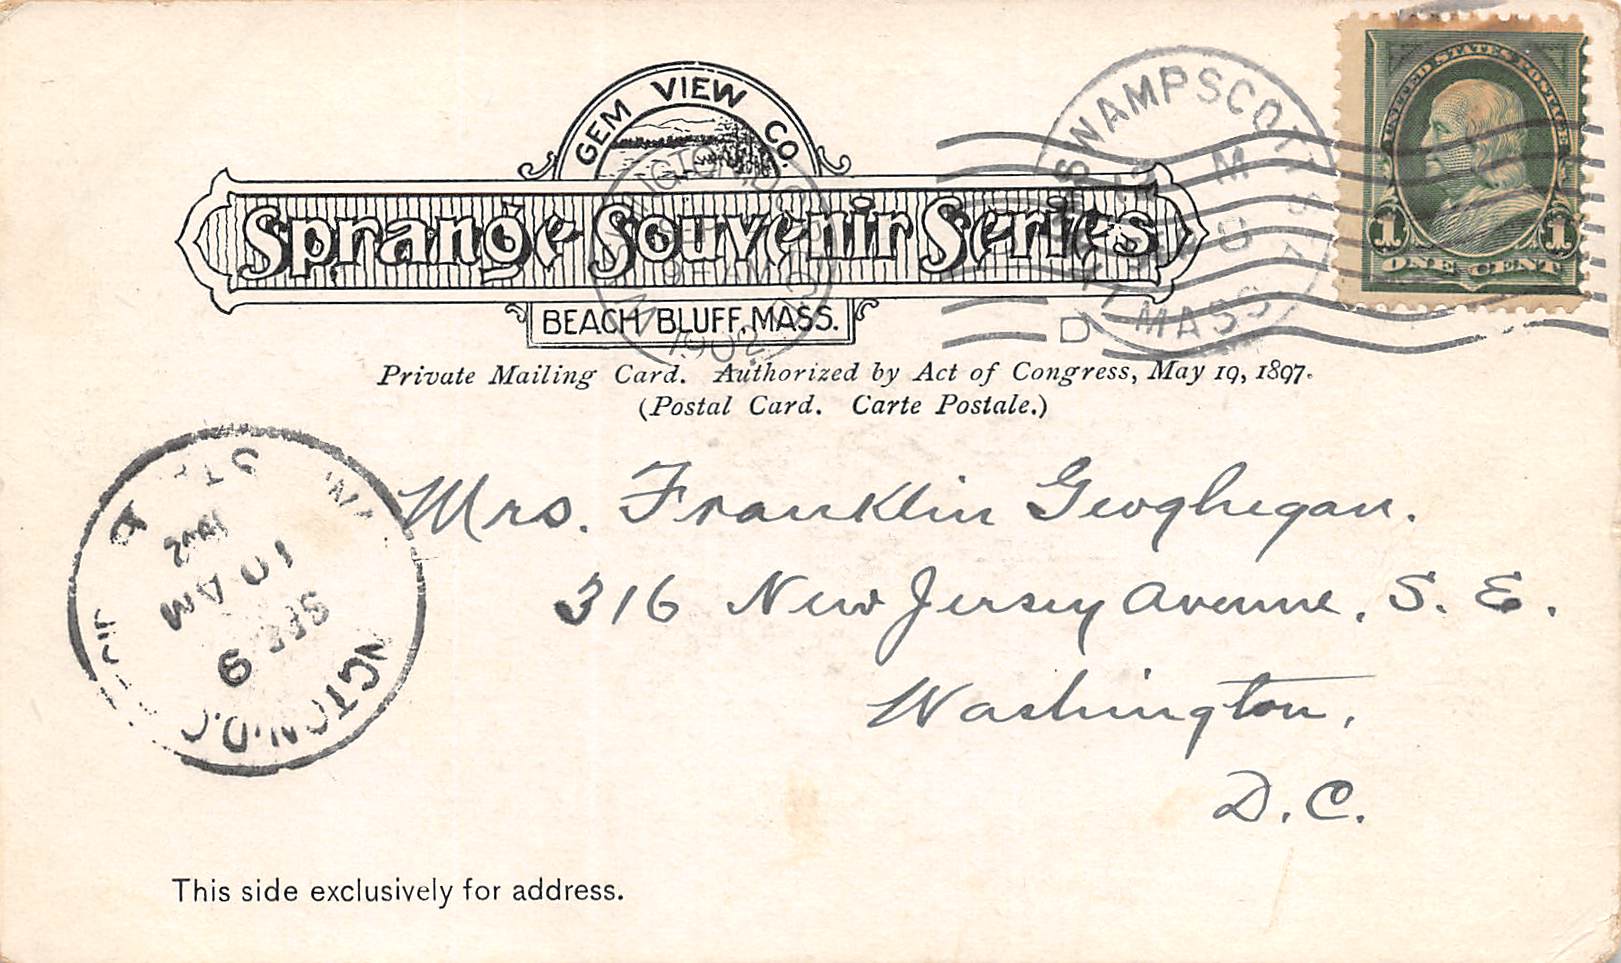 GEM VIEW CO.
Sprange Souvenir Series
BEACH BLUFF, MASS.
Private Mailing Card. Authorized by Act of Congress, May 19, 1897.
(Postal Card. Carte Postale.)
SWAMPSCOTT
MASS
D
UNITED STATES POSTAGE
1 1
ONE CENT
1902
1902
10 AM
SEP
9
NGTON, D.C.
Mrs. Franklin Geoghegan.
316 New Jersey Avenue, S. E.
Washington,
D. C.
This side exclusively for address.